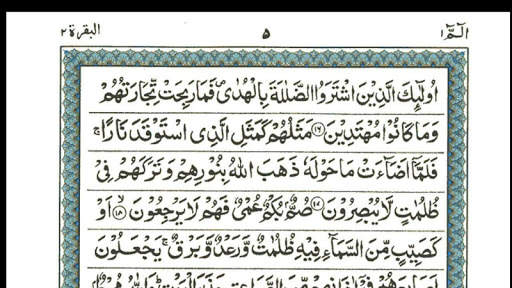 الٓمّٓ ١ ۵ البقرة ٢
اُولٰٓئِكَ الَّذِيْنَ اشْتَرَوُا الضَّلٰلَةَ بِالْهُدٰى ۪ فَمَا رَبِحَتْ تِّجَارَتُهُمْ
وَمَا كَانُوْا مُهْتَدِيْنَ ۝١٦ مَثَلُهُمْ كَمَثَلِ الَّذِى اسْتَوْقَدَ نَارًا ۚ
فَلَمَّآ اَضَآءَتْ مَا حَوْلَهٗ ذَهَبَ اللّٰهُ بِنُوْرِهِمْ وَتَرَكَهُمْ فِىْ
ظُلُمٰتٍ لَّا يُبْصِرُوْنَ ۝١٧ صُمٌّۢ بُكْمٌ عُمْىٌ فَهُمْ لَا يَرْجِعُوْنَ ۝١٨ اَوْ
كَصَيِّبٍ مِّنَ السَّمَآءِ فِيْهِ ظُلُمٰتٌ وَّرَعْدٌ وَّبَرْقٌ ۚ يَجْعَلُوْنَ